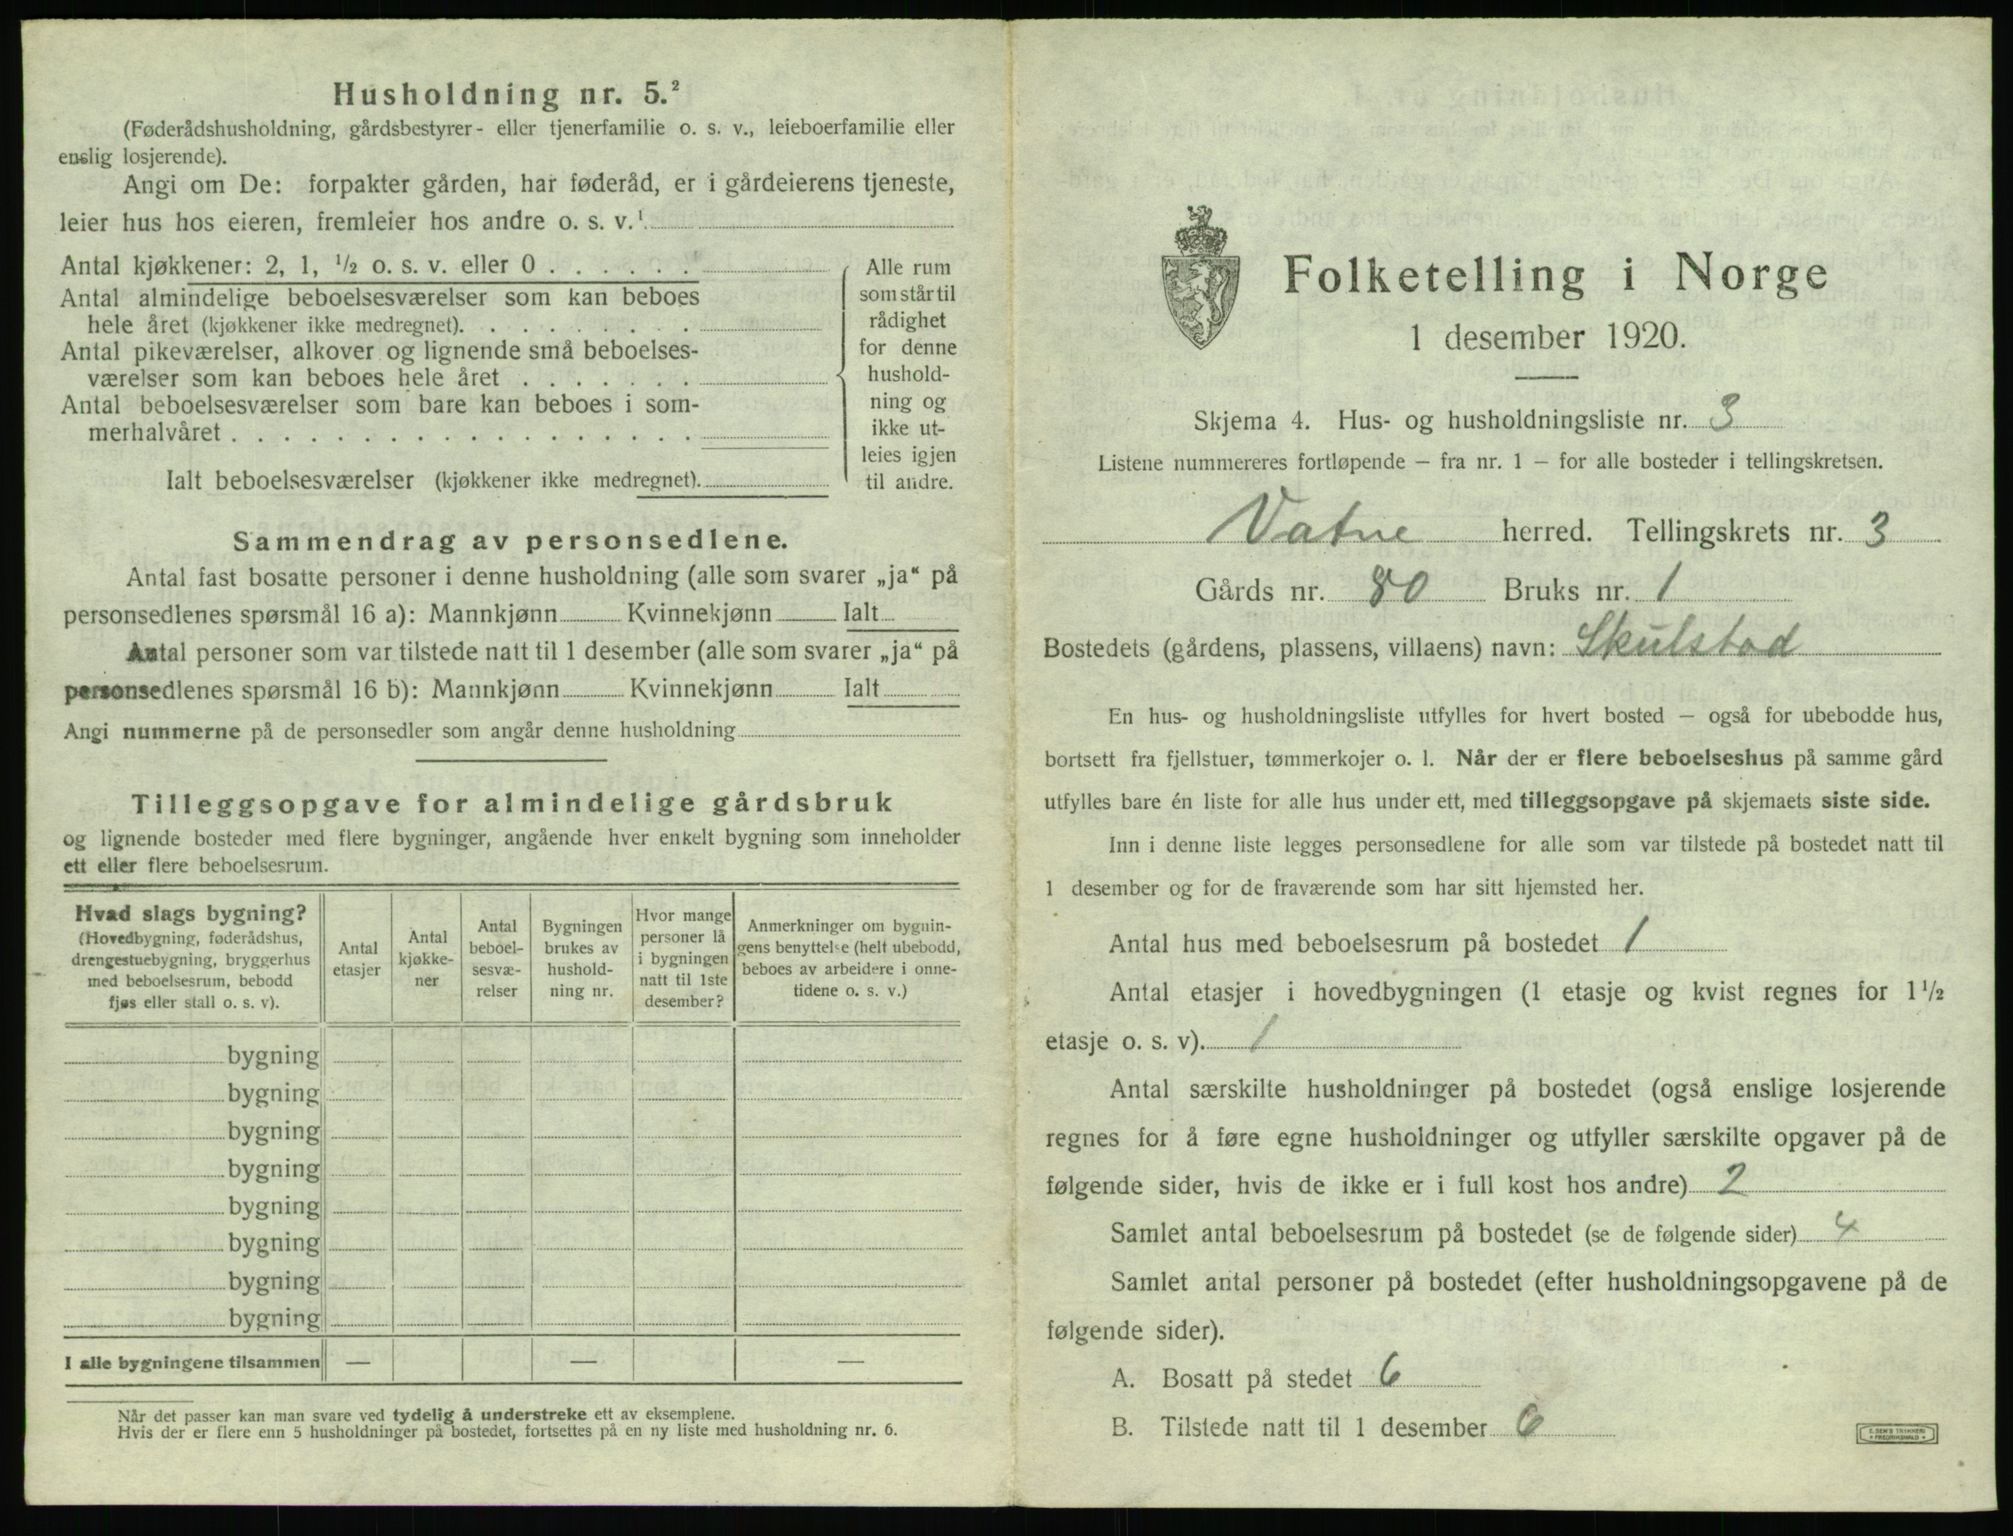 Husholdning nr. 5.²
(Føderådshusholdning, gårdsbestyrer- eller tjenerfamilie o. s. v., leieboerfamilie eller
enslig losjerende).
Angi om De: forpakter gården, har føderåd, er i gårdeierens tjeneste,
leier hus hos eieren, fremleier hos andre o. s. v.¹
Antal kjøkkener: 2, 1, ½ o. s. v. eller 0 . . . . . .
Antal almindelige beboelsesværelser som kan beboes
hele året (kjøkkener ikke medregnet). . . . . . . . .
Antal pikeværelser, alkover og lignende små beboelses-
værelser som kan beboes hele året . . . . . . .
Antal beboelsesværelser som bare kan beboes i som-
merhalvåret . . . . . . . . . . . . . . . . . .
Ialt beboelsesværelser (kjøkkener ikke medregnet).
Alle rum
som står til
rådighet
for denne
hushold-
ning og
ikke ut-
leies igjen
til andre.
Sammendrag av personsedlene.
Antal fast bosatte personer i denne husholdning (alle som svarer „ja“ på
personsedlenes spørsmål 16 a): Mannkjønn Kvinnekjønn Ialt
Antal personer som var tilstede natt til 1 desember (alle som svarer „ja“ på
personsedlenes spørsmål 16 b): Mannkjønn Kvinnekjønn Ialt
Angi nummerne på de personsedler som angår denne husholdning
Tilleggsopgave for almindelige gårdsbruk
og lignende bosteder med flere bygninger, angående hver enkelt bygning som inneholder
ett eller flere beboelsesrum.
Hvad slags bygning?
(Hovedbygning, føderådshus,
drengestuebygning, bryggerhus
med beboelsesrum, bebodd
fjøs eller stall o. s. v).
Antal
etasjer
Antal
kjøkke-
ner
Antal
beboel-
sesvæ-
relser
Bygningen
brukes av
hushold-
ning nr.
Hvor mange
personer lå
i bygningen
natt til 1ste
desember?
Anmerkninger om bygnin-
gens benyttelse (helt ubebodd,
beboes av arbeidere i onne-
tidene o. s. v.)
bygning
bygning
bygning
bygning
bygning
bygning
bygning
bygning
I alle bygningene tilsammen — — —
Når det passer kan man svare ved tydelig å understreke ett av eksemplene.
Hvis der er flere enn 5 husholdninger på bostedet, fortsettes på en ny liste med husholdning nr. 6.
Folketelling i Norge
1 desember 1920.
Skjema 4. Hus- og husholdningsliste nr. 3
Listene nummereres fortløpende — fra nr. 1 — for alle bosteder i tellingskretsen.
Vatne herred. Tellingskrets nr. 3
Gårds nr. 80 Bruks nr. 1
Bostedets (gårdens, plassens, villaens) navn: Skulstad
En hus- og husholdningsliste utfylles for hvert bosted — også for ubebodde hus,
bortsett fra fjellstuer, tømmerkojer o. l. Når der er flere beboelseshus på samme gård
utfylles bare én liste for alle hus under ett, med tilleggsopgave på skjemaets siste side.
Inn i denne liste legges personsedlene for alle som var tilstede på bostedet natt til
1 desember og for de fraværende som har sitt hjemsted her.
Antal hus med beboelsesrum på bostedet 1
Antal etasjer i hovedbygningen (1 etasje og kvist regnes for 1½
etasje o. s. v). 1
Antal særskilte husholdninger på bostedet (også enslige losjerende
regnes for å føre egne husholdninger og utfyller særskilte opgaver på de
følgende sider, hvis de ikke er i full kost hos andre) 2
Samlet antal beboelsesrum på bostedet (se de følgende sider) 4
Samlet antal personer på bostedet (efter husholdningsopgavene på de
følgende sider).
A. Bosatt på stedet 6
B. Tilstede natt til 1 desember 6